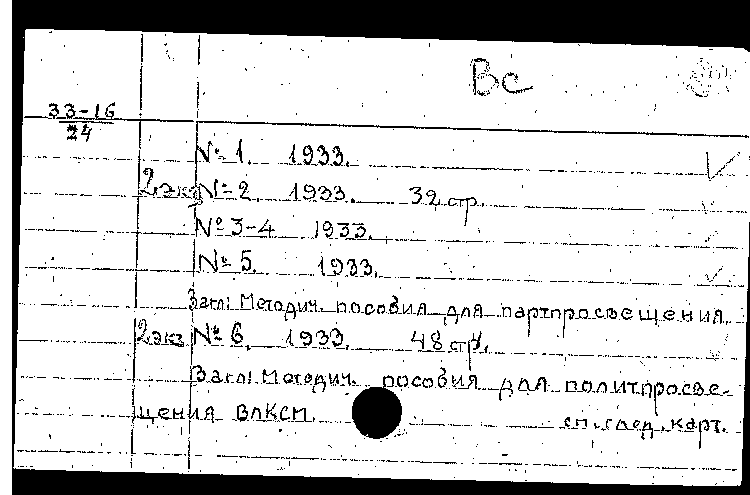 Вс
33-16
24
№ 1. 1933.
2 экз № 2. 1933. 32 стр.
№ 3-4 1933.
№ 5. 1933.
Загл: Методич. пособия для партпросвещения.
2 экз № 6. 1933. 48 стр.
Загл: Методич. пособия для политпросве-
щения ВЛКСМ. см. след. карт.